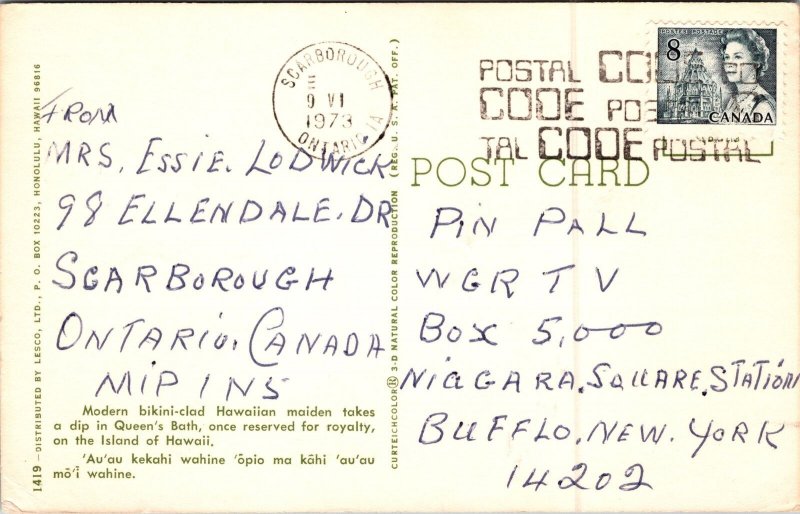 FROM
MRS. ESSIE. LODWICK
98 ELLENDALE. DR
SCARBOROUGH
ONTARIO. CANADA
MIP INS
Modern bikini-clad Hawaiian maiden takes
a dip in Queen's Bath, once reserved for royalty,
on the Island of Hawaii.
'Au'au kekahi wahine 'ōpio ma kāhi 'au'au
mō'ī wahine.
1419—DISTRIBUTED BY LESCO, LTD., P. O. BOX 10223, HONOLULU, HAWAII 96816
SCARBOROUGH
9 VI
1973
ONTARIO
CURTEICHCOLOR® 3-D NATURAL COLOR REPRODUCTION (REG. U. S. A. PAT. OFF.)
POSTAL CODE
CODE POS
TAL CODE POSTAL
POSTES POSTAGE
8
CANADA
POST CARD
PIN PALL
WGR T V
BOX 5,000
NIAGARA. SQUARE. STATION
BUFFLO. NEW. YORK
14202